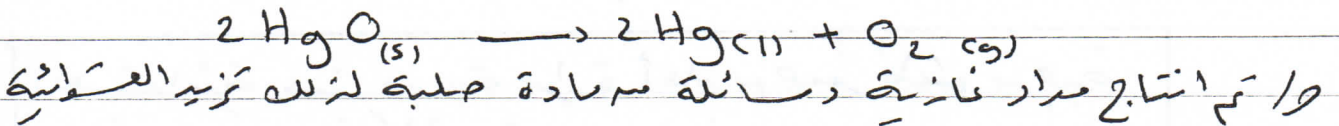 2 HgO(s) → 2 Hg(l) + O2 (g)
ج/ تم انتاج مواد غازية وسائلة من مادة صلبة لذلك تزيد العشوائية